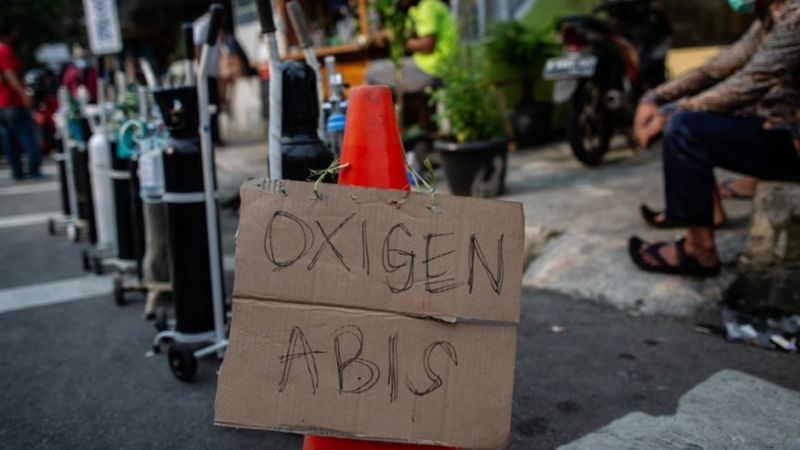 OXIGEN
ABIS